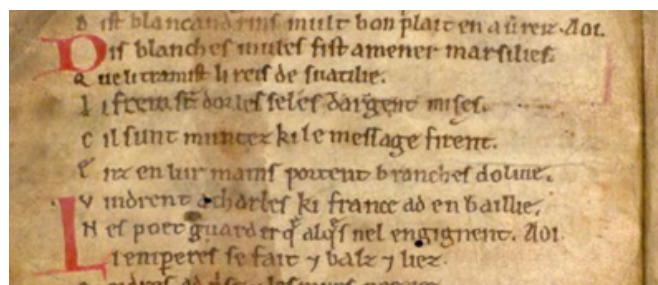 D ist blancandrins mult bon plait en aurez. Aoi.
Dis blanches mules fist amener marsilies.
Q ue li tramist li reis de suatilie.
L i frein st̄ dor les seles dargent mises.
C il sunt muntez ki le message firent.
E nz en lur mains portent branches dolive.
V indrent a charles ki france ad en baillie.
N es poet guarder q̄ alq̄s nel engignent. Aoi.
Li emperes se fait ⁊ balz ⁊ liez.